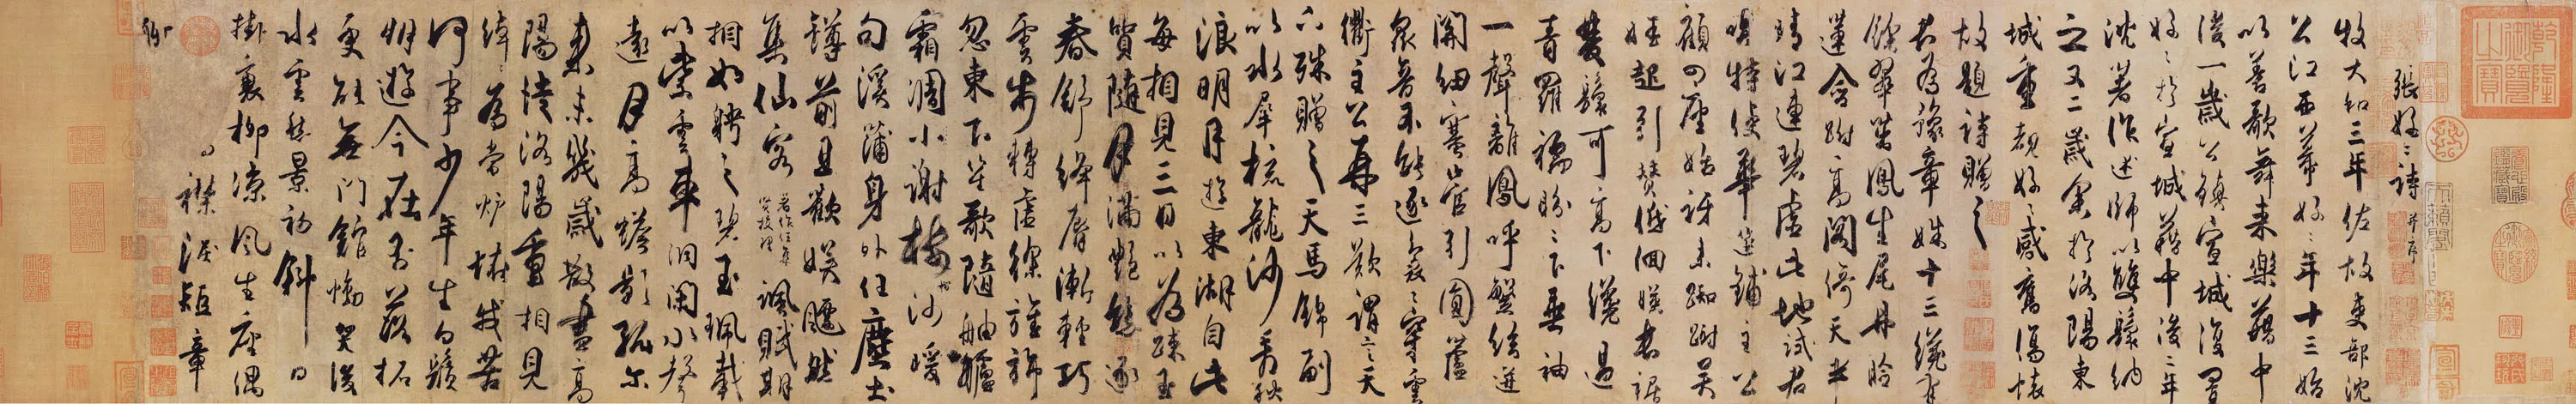 張好好詩 并序
牧大和三年佐故吏部沈
公江西幕好好年十三始
以善歌舞來樂籍中
後一歲公鎮宣城復置
好好於宣城籍中後二年
沈著作述師以雙鬟納
之又二歲余於洛陽東
城重覩好好感舊傷懷
故題詩贈之
君為豫章姝十三纔有
餘翠茁鳳生尾丹臉
蓮含跗高閣倚天半
晴江連碧虛此地試君
唱特使華筵鋪主公
顧四座始訝來踟躕吳
娃起引贊低佪映長裾
雙鬟可高下纔過
青羅襦盼盼下垂袖
一聲離鳳呼繁絃迸
關紐塞管引圓蘆
衆音不能逐裊裊穿雲
衢主公再三歎謂言天
下殊贈之天馬錦副
以水犀梳龍沙看秋
浪明月遊東湖自此
每相見三日以為疎玉
質隨月滿艷態逐
春舒絳脣漸輕巧
雲步轉虛徐旌旆
忽東下笙歌隨舳艫
霜凋小謝樹沙暖
句溪蒲身外任塵土
罇前且歡娛飄然
集仙客著作任集賢校理諷賦期
相如聘之碧玉珮載
以紫雲車洞閉水聲
遠月高蟾影孤尔
來未幾歲散盡高
陽徒洛陽重相見
綽綽為當爐怪我苦
何事少年生白鬚
朋遊今在否落拓
更能無門館慟哭後
水雲愁景初斜日
掛衰柳涼風生座隅
襟淚短章
聊
乾隆御覽之寶